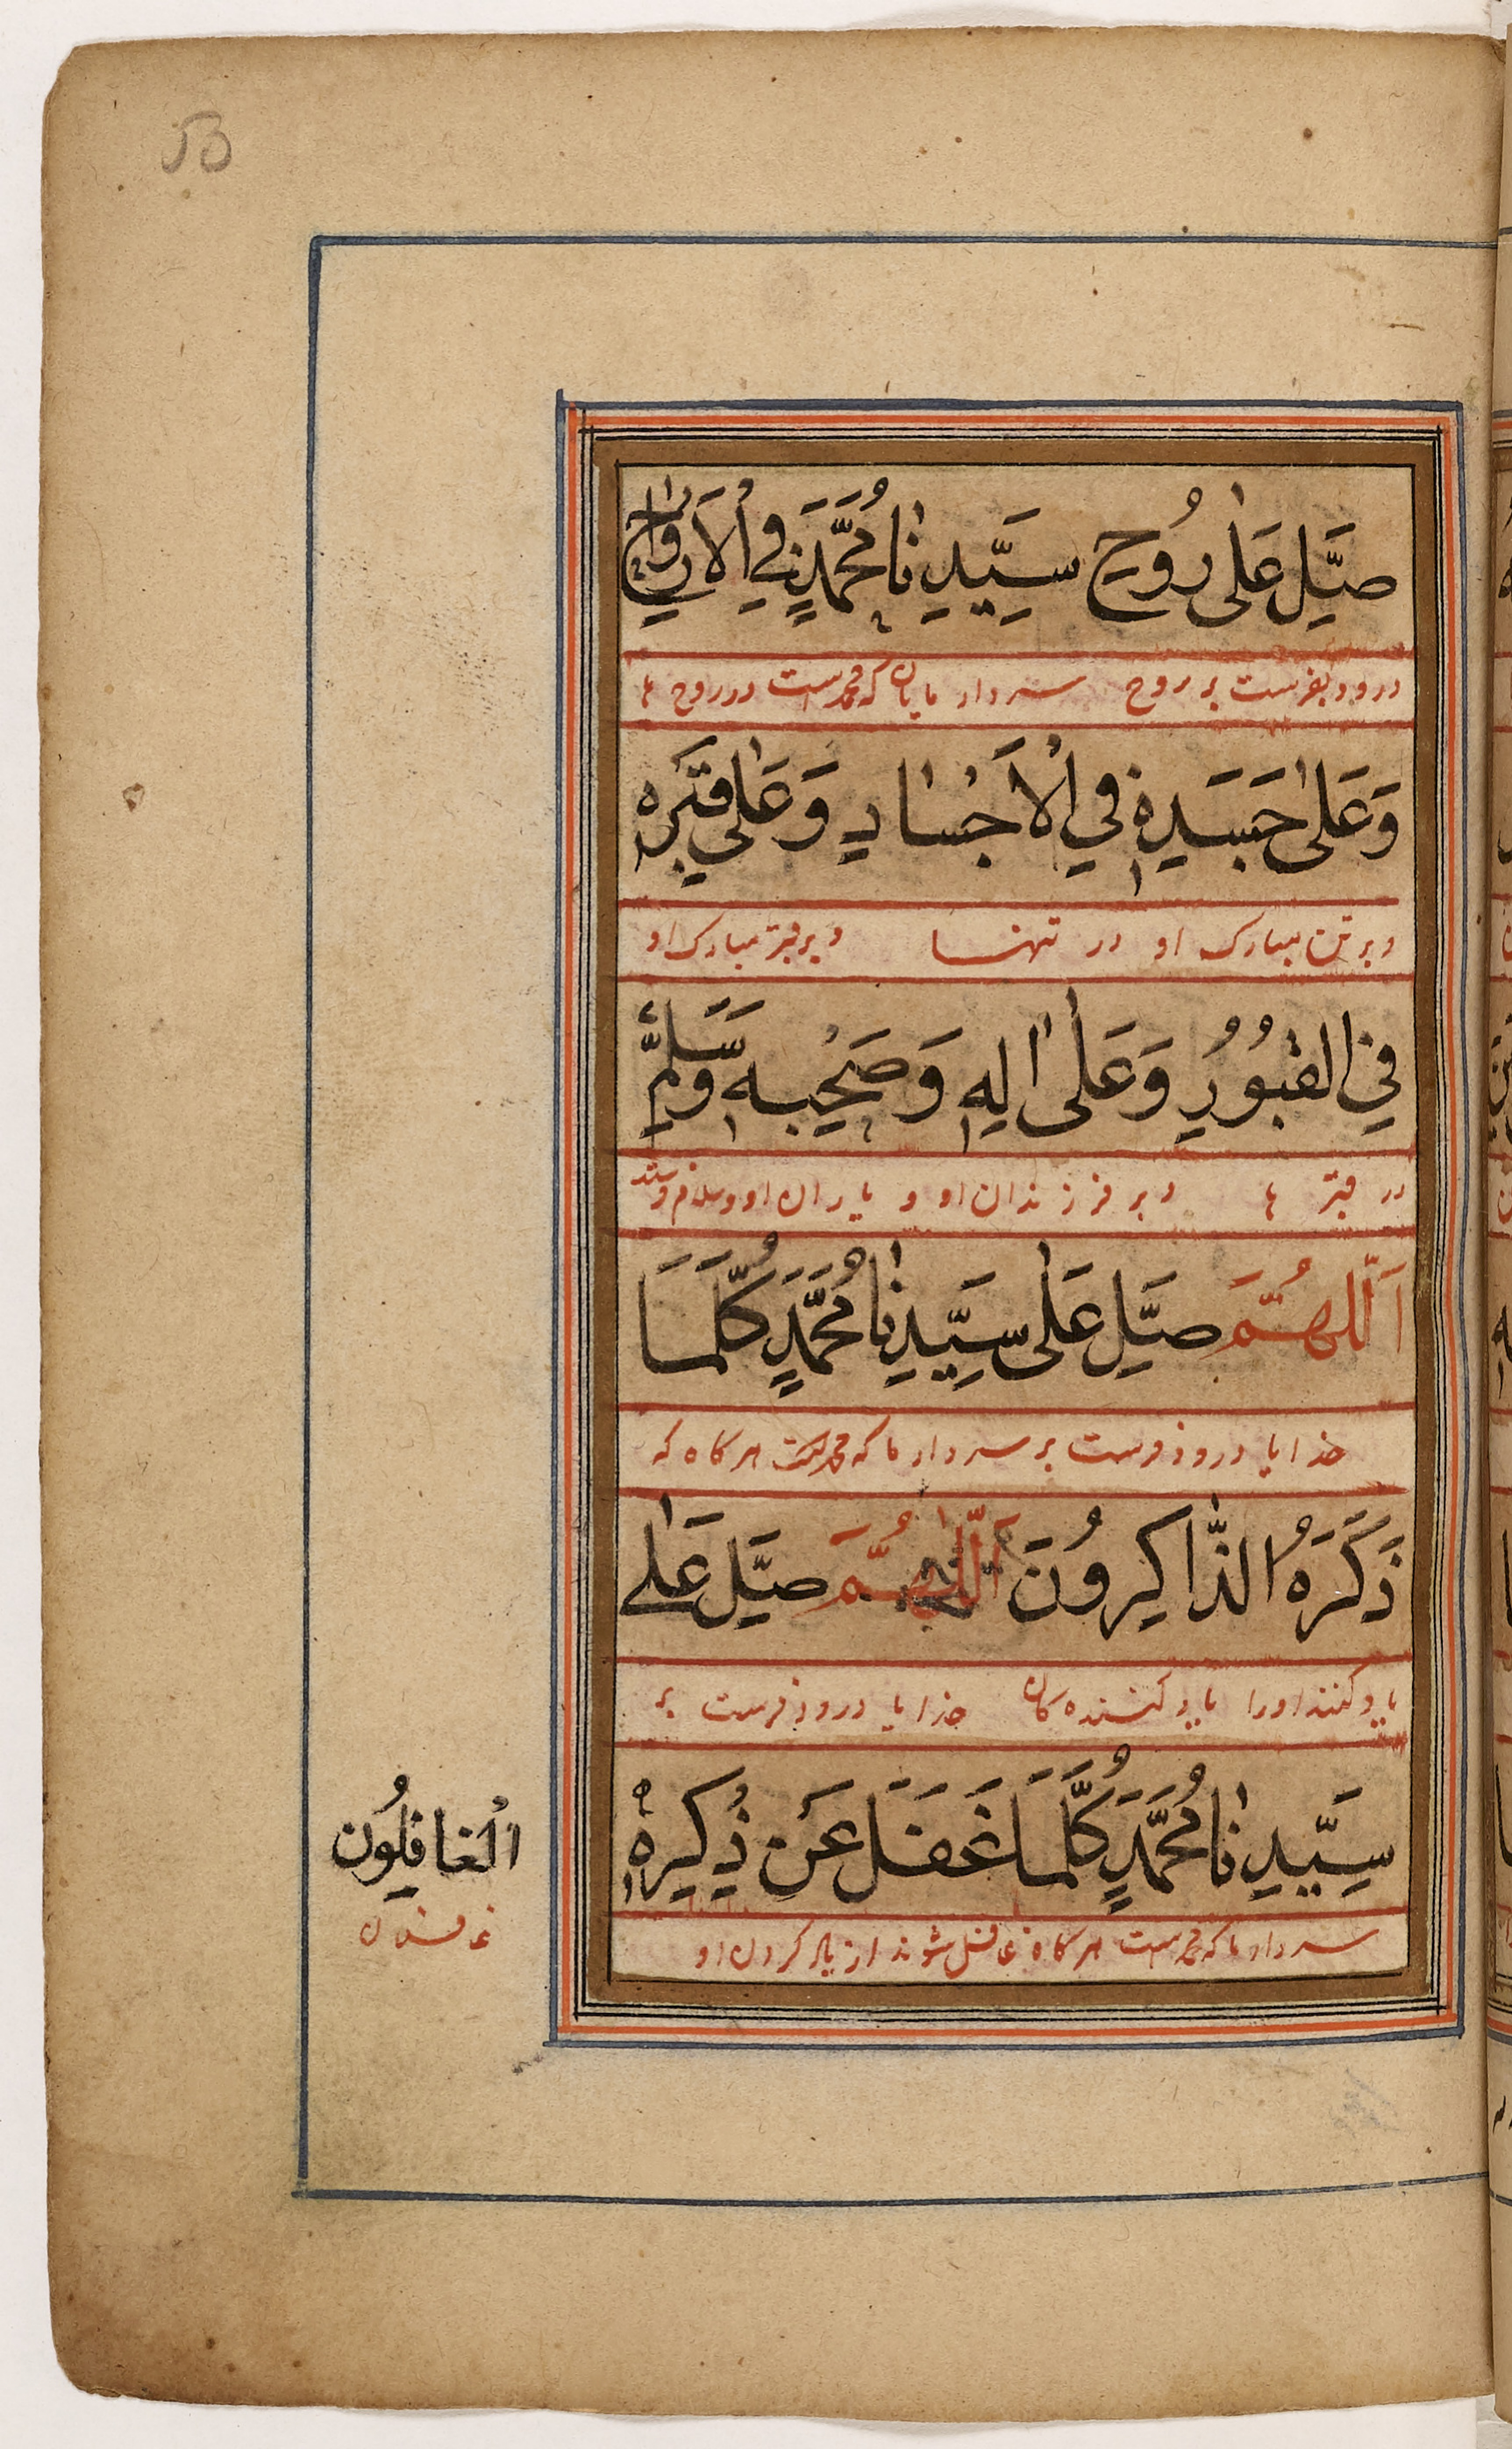 صَلِّ عَلٰى رُوحِ سَيِّدِنَا مُحَمَّدٍ فِي الْاَرْوَاحِ
درود بفرست بر روح سردار مایان که محمد است در روح ها
وَعَلٰى جَسَدِهٖ فِي الْاَجْسَادِ وَعَلٰى قَبْرِهٖ
و بر تن مبارک او در تنها و بر قبر مبارک او
فِي الْقُبُوُرِ وَعَلٰى اٰلِهٖ وَصَحْبِهٖ وَسَلِّمْ
در قبر ها و بر فرزندان او و یاران او و سلام فرستد
اَللّٰهُمَّ صَلِّ عَلٰى سَيِّدِنَا مُحَمَّدٍ كُلَّمَا
خدایا درود فرست بر سردار ما که محمد است هرگاه که
ذَكَرَهُ الذَّاكِرُونَ اَللّٰهُمَّ صَلِّ عَلٰى
یاد کنند اورا یاد کننده کان خدایا درود فرست بر
سَيِّدِنَا مُحَمَّدٍ كُلَّمَا غَفَلَ عَنْ ذِكْرِهٖ
سردار ما که محمد است هرگاه غافل شوند از یاد کردن او
الْغَافِلُون
غافلان